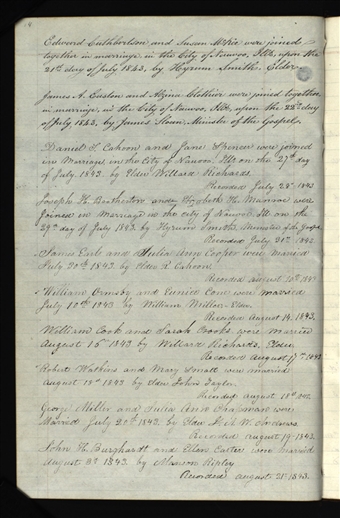 Edward Cuthbertson and Susan were joined
together in marriage in the City of Nauvoo, Ills, upon the
21st day of July 1843, by Hyrum Smith, Elder.
James A. Easton and Clothier were joined together
in marriage, in the City of Nauvoo, Ills, upon the 22d day
of July 1843, by James Sloan, Minister of the Gospel.
Daniel S. Cahoon and Jane Spencer were joined
in Marriage, in the City of Nauvoo Ills on the 27th day
of July 1843 by Elder Willard Richards.
Recorded July 28th 1843
Joseph H. and Elizabeth H. Manroe were
Joined in Marriage in the city of Nauvoo Ill on the
29th day of July 1843 by Hyrum Smith Minister of the Gospel
Recorded July 31st 1843
James Earl and Julia Ann Cooper were married
July 30th 1843 by Elder R. Cahoon
Recorded August 10th 1843
William Ormsby and Eunice Cone were married
July 10th 1843 by William Elder.
Recorded August 14. 1843.
William Cook and Sarah Crooks were married
August 16th 1843 by Willard Richards, Elder
Recorded August 17th 1843
Robert Watkins and Mary Smalt were married
August 18th 1843 by Elder John Taylor.
Recorded August 18th 1843
George Miller and Julia Ann Chapman were
Married July 20th 1843 by Elder W. Andrews
Recorded August 19 1843.
John H. Burghardt and Ellen Carter were married
August 8th 1843 by Alanson Ripley
Recorded August 21st 1843.